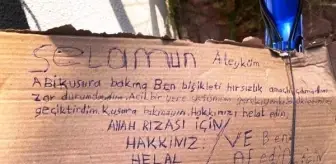 Selamun Aleyküm
Abi kusura bakma Ben bisikleti hırsızlık amaçlı çalmadım
Zor durumdaydım. Acil bir yere
geçiktirdim. Kusura bakmayın. Hakkınızı helal edin.
ALLAH RIZASI İÇİN
HAKKINIZI VE Ben
HELAL